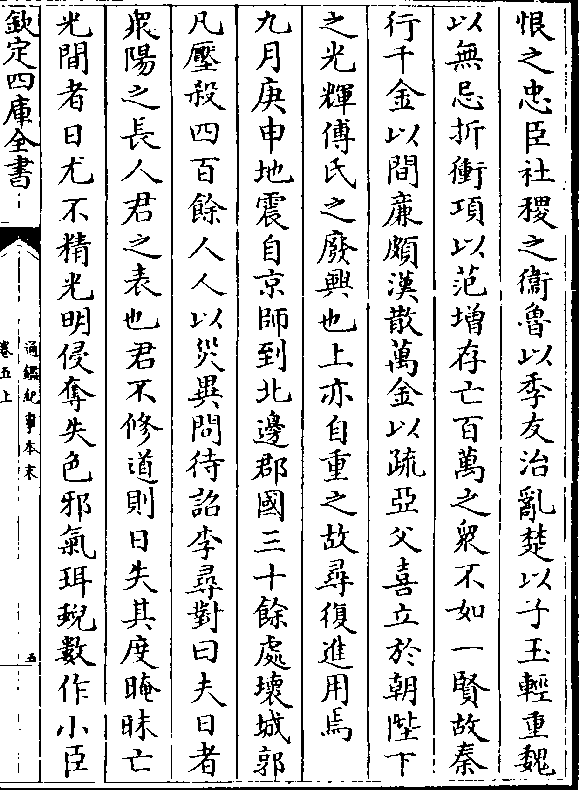 恨之忠臣社稷之衞魯以季友治亂楚以子玉輕重魏
以無忌折衝項以范增存亡百萬之衆不如一賢故秦
行千金以間廉頗漢散萬金以疏亞父喜立於朝陛下
之光輝傅氏之廢興也上亦自重之故尋復進用焉
九月庚申地震自京師到北邊郡國三十餘處壞城郭
凡壓殺四百餘人人以災異問待詔李尋對曰夫日者
衆陽之長人君之表也君不修道則日失其度晻昧亡
光間者日尤不精光明侵奪失色邪氣珥蜺數作小臣
欽定四庫全書
通鑑紀事本末
卷五上
五